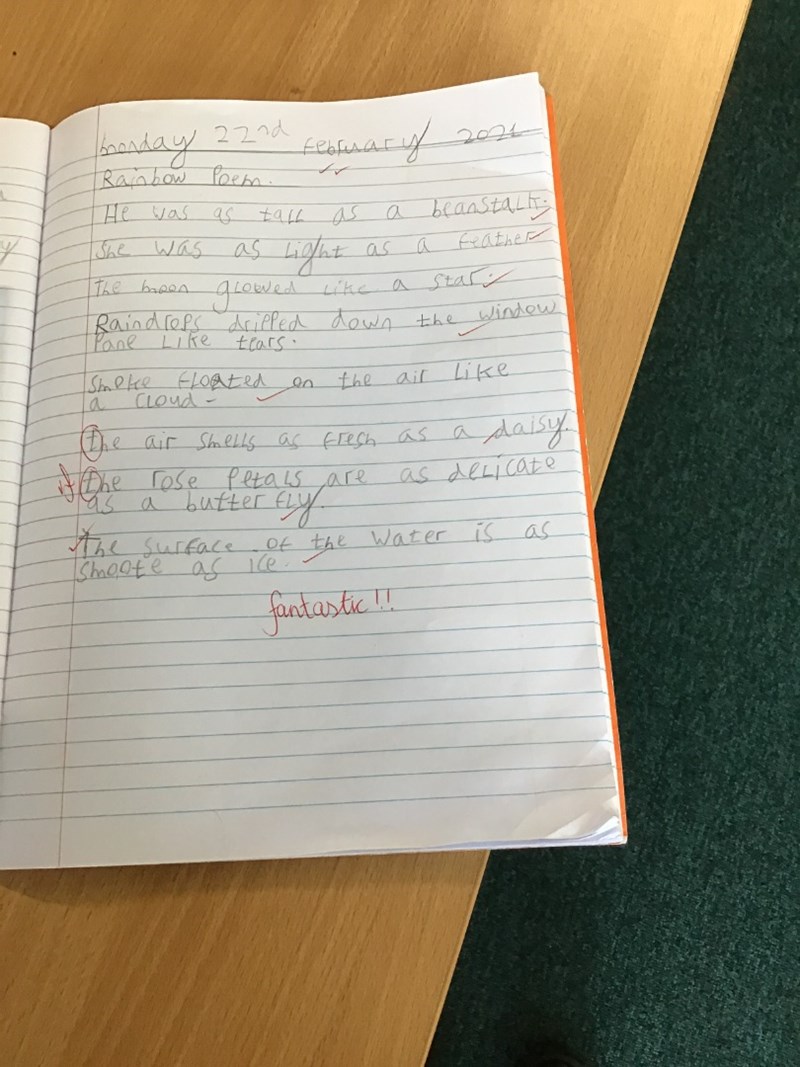 monday 22nd february 2021
Rainbow Poem.
He was as tall as a beanstalk.
she was as light as a feather
The moon glowed like a star.
Raindrops dripped down the window
Pane Like tears.
Smoke floated on the air like
a cloud-
the air smells as fresh as a daisy.
the rose petals are as delicate
as a butterfly.
The surface of the water is as
smoote as ice.
fantastic!!